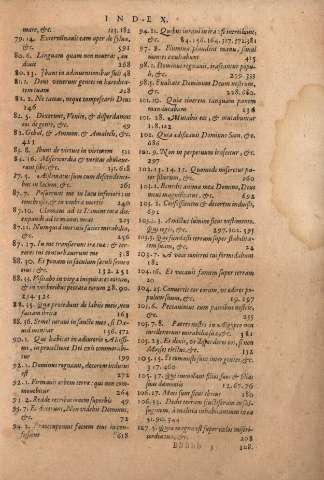 INDEX.
mare, &c. 123.182
79.14. Exterminavit eam aper de sylva,
&c. 591
80.6. Linguam quam non noverat, au-
divit 268
80.13. Ibunt in adinventionibus suis 48
81.1. Deus
tem suam 228
81.2. Ne taceas, neque compescaris Deus
346
82.5. Disperdent, Venite, & disperdamus
eos de gente, &c. 49
82. Gebal, & Ammon, & Amalech, &c.
423
83.8. Ibunt de virtute in virtutem
84.16. Misericordia & veritas obviave-
runt sibi, &c. 618
87.5. Aestimatus sum cum descendenti-
bus in lacum, &c. 261
87.7. Posuerunt me in lacu inferiori in
tenebrosis, & in umbra mortis 240
87.10. Clamavi ad te Domine tota die
expandi ad te manus meas 225
87.11. Nunquid mortuis facies mirabilia,
&c. 221
87.17. In me transierunt irae tuae & ter-
rores tui conturbaverunt me 318
88.30. Et ponam in seculum seculi semen
eius 132. 251
88.33. Visitabo in virga iniquitates eorum,
& in verberibus peccata eorum 28.90.
234. 325
88.35. Quae procedunt de labiis meis, non
faciam irrita 163
88.36. Semel iuravi in sancto meo, si Da-
vid mentiar 156. 572
90.1. Qui habitat in adiutorio Altissi-
mi, in protectione Dei caeli commorabi-
tur 199
92.1. Dominus regnavit, decorem indutus
est, &c. 63
92.1. Firmavit orbem terrae qui non com-
movebitur 260
93.2. Redde retributionem superbis 49
93.7. Et dixerunt, Non videbit Dominus,
&c. 72
94.2. Praeoccupemus faciem eius in con-
fessione 618
94.11. Quibus iuravi in ira: si introibunt,
&c. 84.156.164.317.572.581
97.8. Flumina plaudent manu, simul
montes exultabunt 20
98.1. Dominus regnavit, irascantur popu-
li, &c. 259. 335
98.5. Exaltate Dominum Deum nostrum,
&c. 228. 062.
101.10. Quia cinerem tanquam panem
manducabam 236
101.28. Mutabis eos, & mutabuntur
1.8.112
101. Quia aedificavit Dominus Sion, &c.
686
102.9. Non in perpetuum irascetur, &c.
297
102.13.14. Quomodo miseretur pater
filiorum, &c.
103.1. Benedic anima mea Domino, Deus
meus magnificatus es, &c. 698
103.1. Confessionem & decorem induisti,
692
103.2. Amictus lumine sicut vestimento,
Qui tegis, &c. 297. 101. 595
103.5. Qui fundasti terram super stabilita-
tem 22
103.7. A voce tonitrui tui formidabunt
181
104.16. Et vocavit famem super terram
20
104.25. Convertit cor eorum, ut odirent po-
pulum suum, &c. 19. 297
105.6. Peccavimus cum patribus nostris,
&c. 235
105.7.8. Patres nostri in Aegypto non
intellexerunt mirabilia tua, &c. 381
105.23. Et dixit, ut disperderet eos, si non
Moyses electus, &c. 132
105.35. Et commisti sunt inter gentes, &c.
317. 460
105.37. Qui immolant filios suos & filias
suas daemoniis 12. 67. 76
106.27. Moti sunt sicut ebrius 180
106.33. Dedit terram fructiferam in sal-
suginem, à malitia inhabitantium in ea
31. 90. 744
107.5. Quia magna est super caelos miseri-
cordia tua, &c. 208
328.